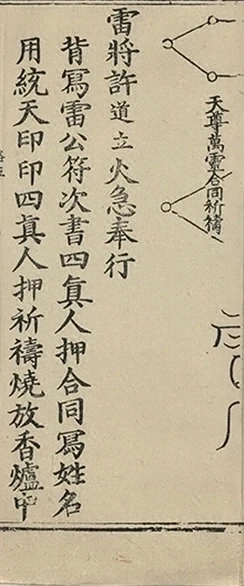 天尊萬靈合同祈禱
雷將許道立火急奉行
背寫雷公符次書四眞人押合同寫姓名
用統天印印四眞人押祈禱燒放香爐中